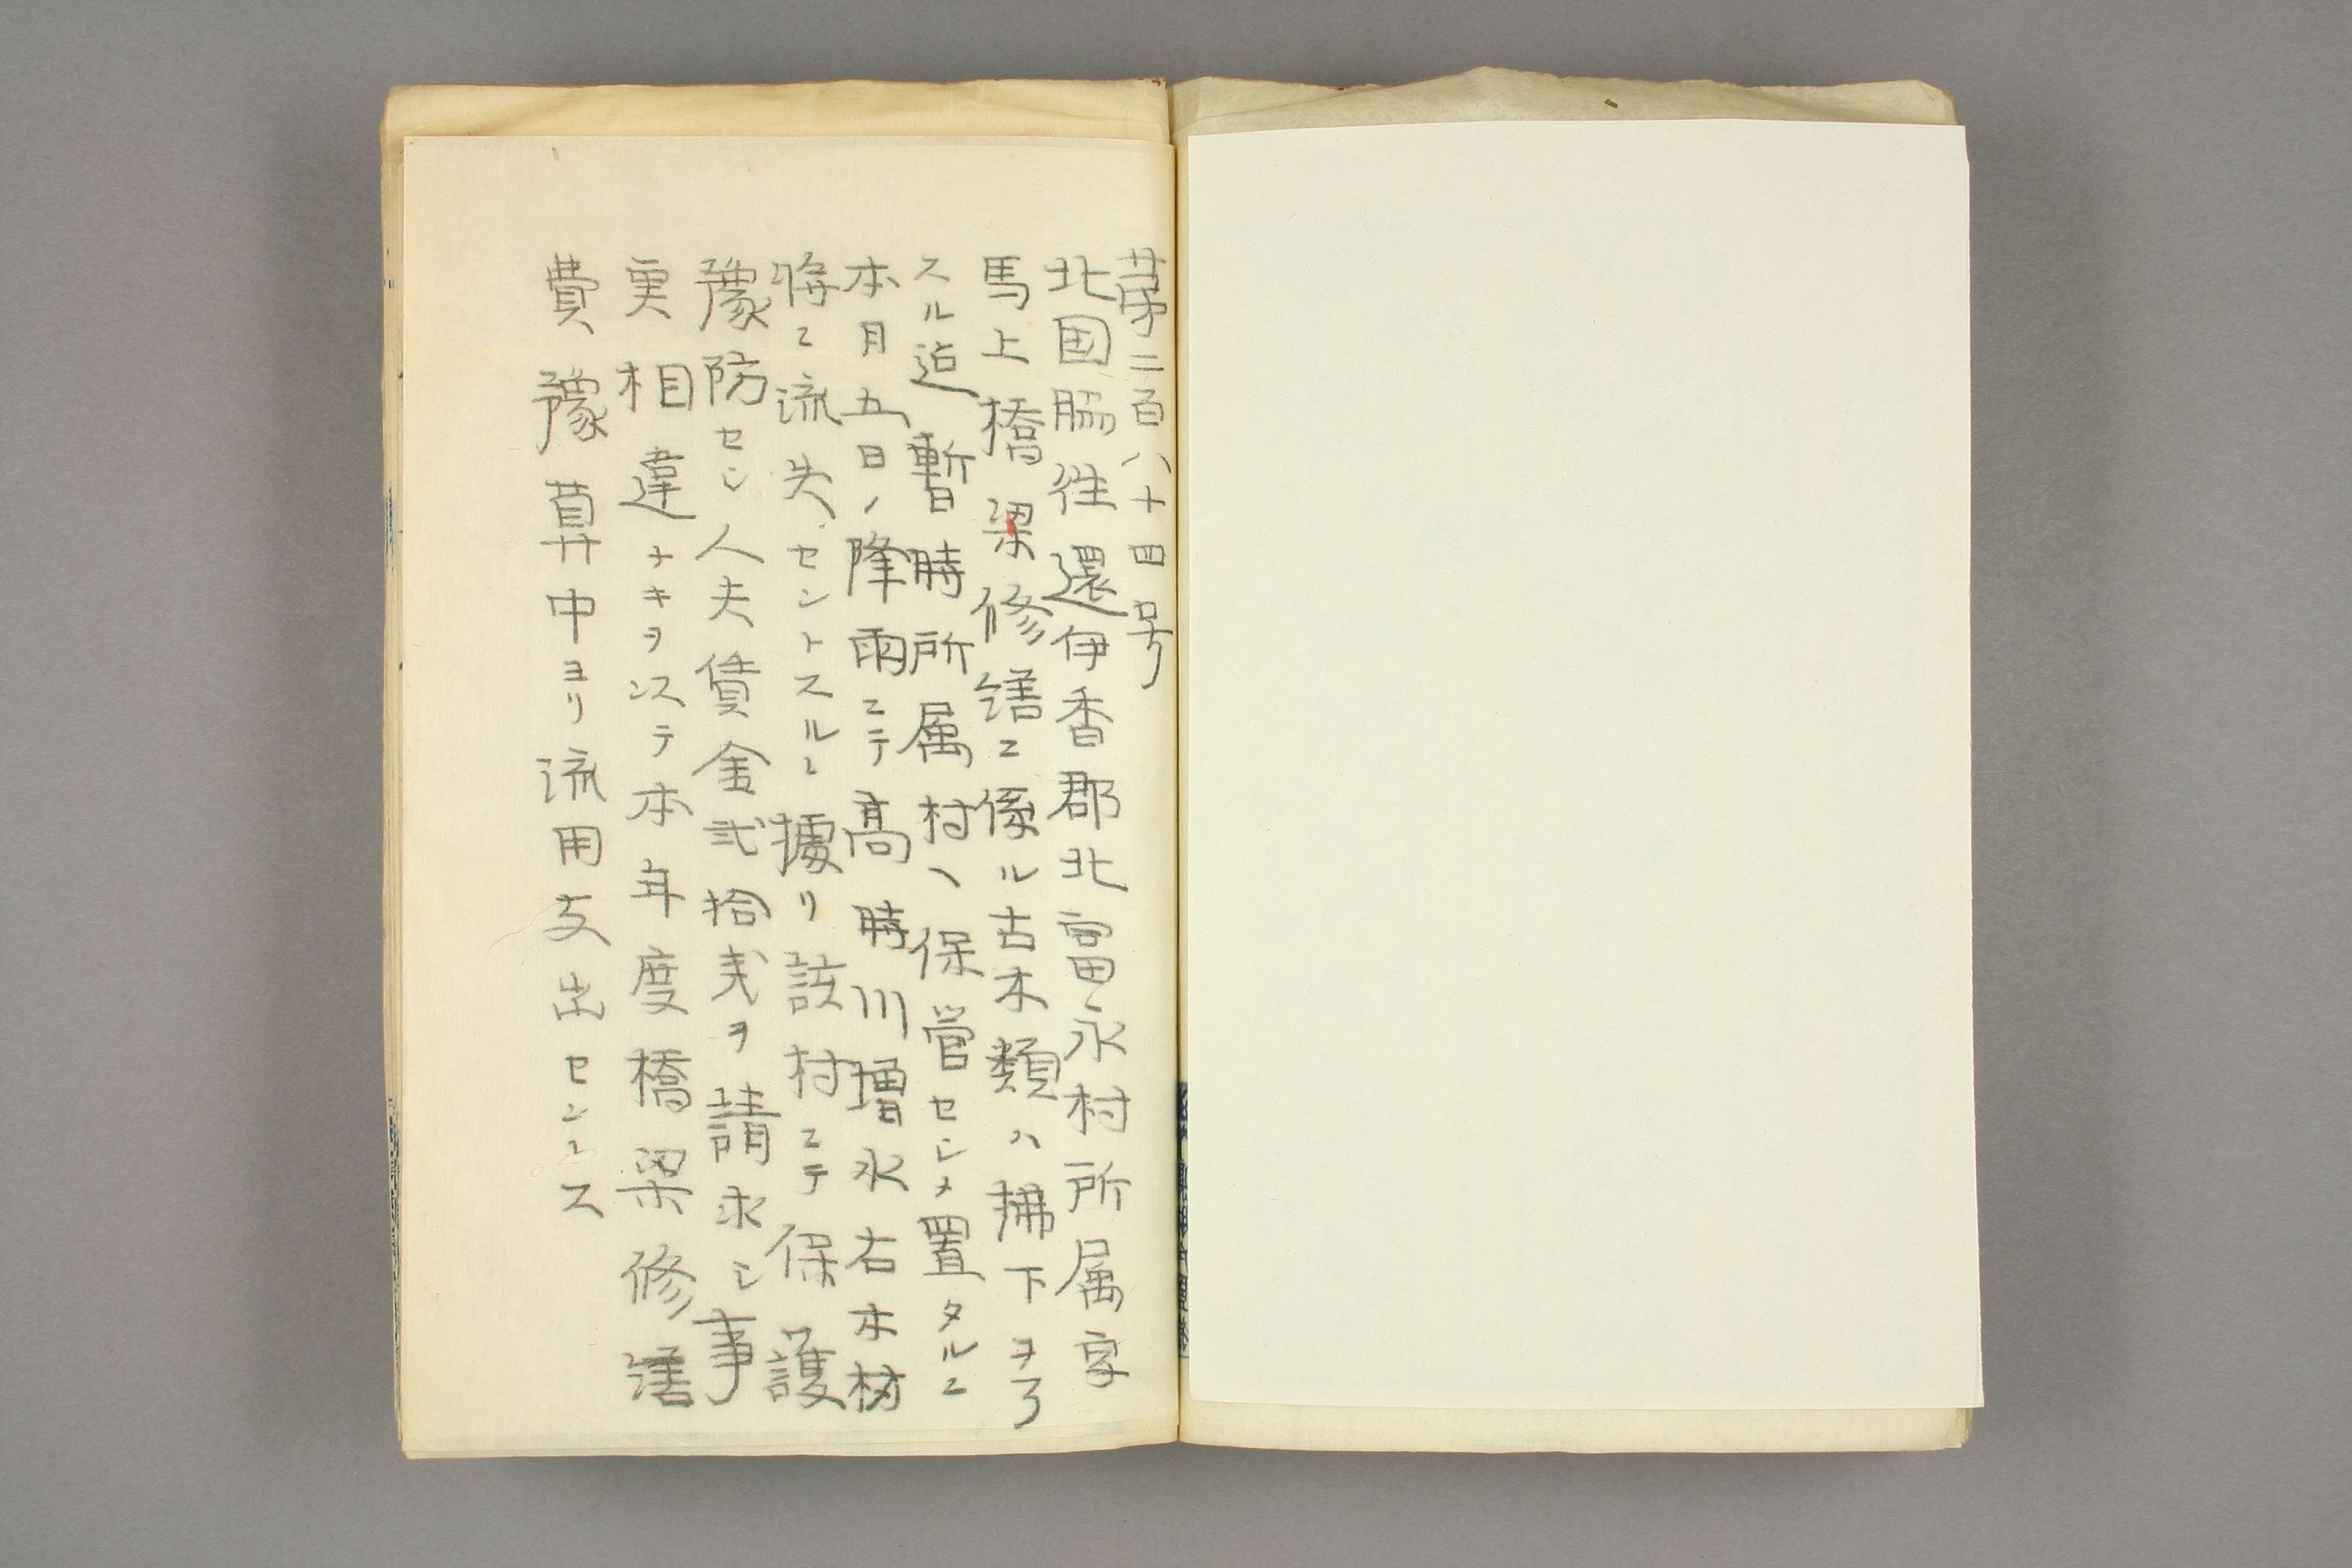 第二百八十四号
北国脇往還伊香郡北富永村所属字
馬上橋梁修繕ニ係ル古木類ハ拂下ヲ了
スル迠暫時所属村ヘ保管セシメ置タルニ
本月五日ノ降雨ニテ髙時川増水右木材
将ニ流失セントスルニ據リ該村ニテ保護
豫防セシ人夫賃金弐拾弐ヲ請求シ事
実相違ナキヲ以テ本年度橋梁修繕
費豫算中ヨリ流用支出セントス